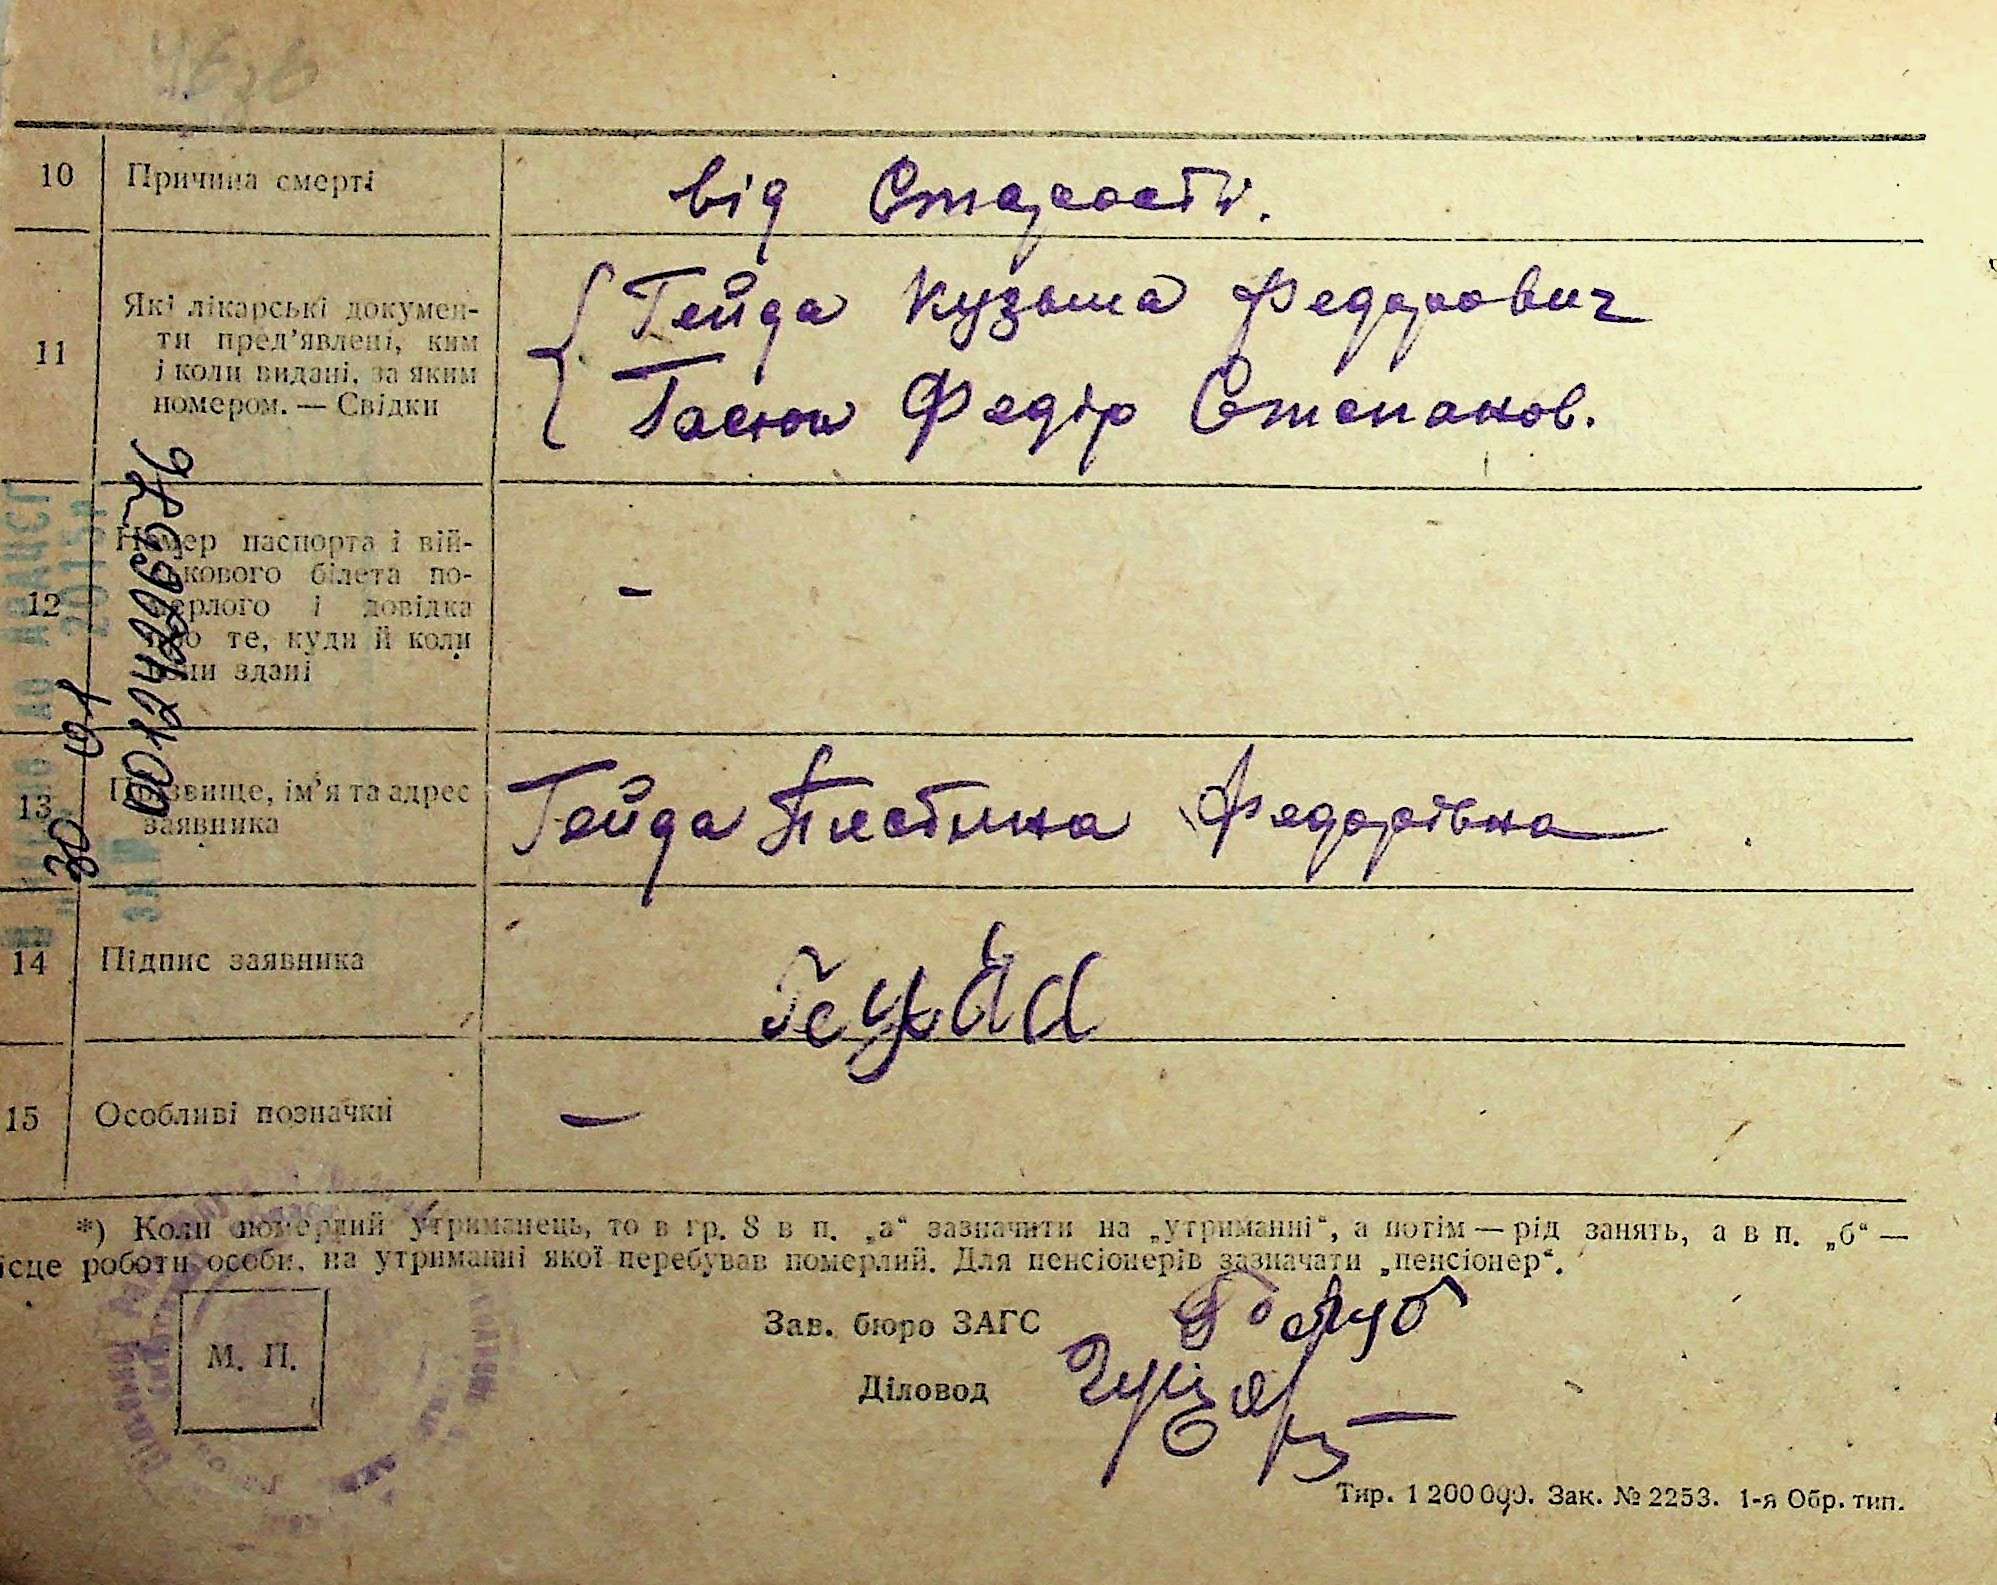 10 Причина смерті від Старости.
11 Які лікарські докумен-
ти пред'явлені, ким
і коли видані, за яким
номером. — Свідки
Гейда Кузьма Федорович
Федір Степанов.
12 Номер паспорта і вій-
кового білета по-
мерлого і довідка
про те, куди й коли
вони здані
—
13 Прізвище, ім'я та адрес
заявника
Гейда Федорівна
14 Підпис заявника Гейда
15 Особливі позначки —
*) Коли померлий утриманець, то в гр. 8 в п. „а“ зазначити на „утриманні“, а потім — рід занять, а в п. „б“ —
ісце роботи особи, на утриманні якої перебував померлий. Для пенсіонерів зазначати „пенсіонер“.
Зав. бюро ЗАГС
М. П.
Діловод
Тир. 1 200 000. Зак. № 2253. 1-я Обр. тип.